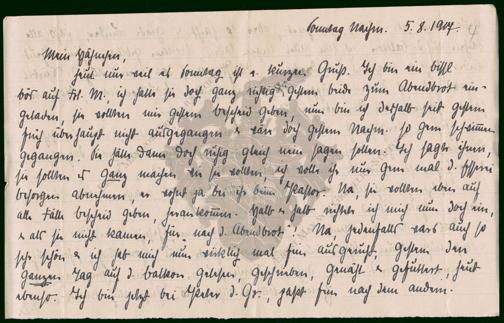 Sonntag Nachm. 5.8.1904.
Mein Hähnchen,
heut nur weil es Sonntag ist e. kurzen Gruß. Ich bin ein bißl
bös auf Frl. M., ich hatte sie doch ganz richtig gestern beide zum Abendbrot ein-
geladen, sie wollten mir gestern bescheid geben, nun bin ich deshalb seit gestern
früh überhaupt nicht ausgegangen & wär doch gestern Nachm. so gern schwimmen
gegangen. Sie hätte dann doch ruhig gleich nein sagen sollen. Ich sagte ihnen,
sie sollten es ganz machen wie sie wollten, ich wollte ihr nur gern mal d.
besorgen abnehmen, er wohnt ja bei ihr beim. Na, sie wollten eben auf
alle Fälle bescheid geben, herankommen. Halb & halb richtete ich mich nun doch ein,
& als sie nicht kamen, nach d. Abendbrot. Na jedenfalls wars auch so
sehr schön & ich hab mich nun wirklich mal fein ausgeruht, gestern den
ganzen Tag auf d. Balkon gelesen, geschrieben, genäht & gefuttert, heut
ebenso. Ich bin jetzt bei Peter d. Gr., paßt fein nach dem andern.